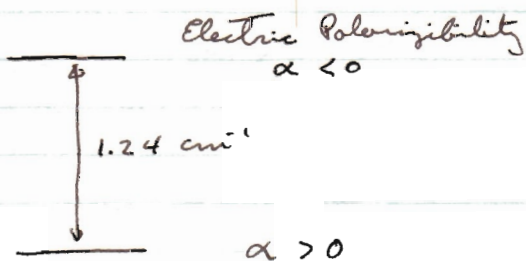 Electric Polarizibility
α < 0
1.24 cm⁻¹
α > 0